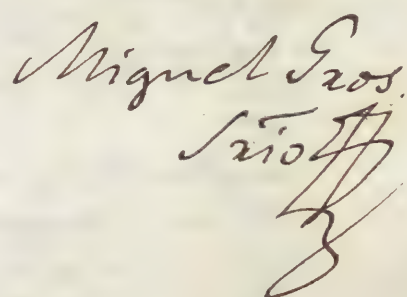 Miguel Gros.
Srīo